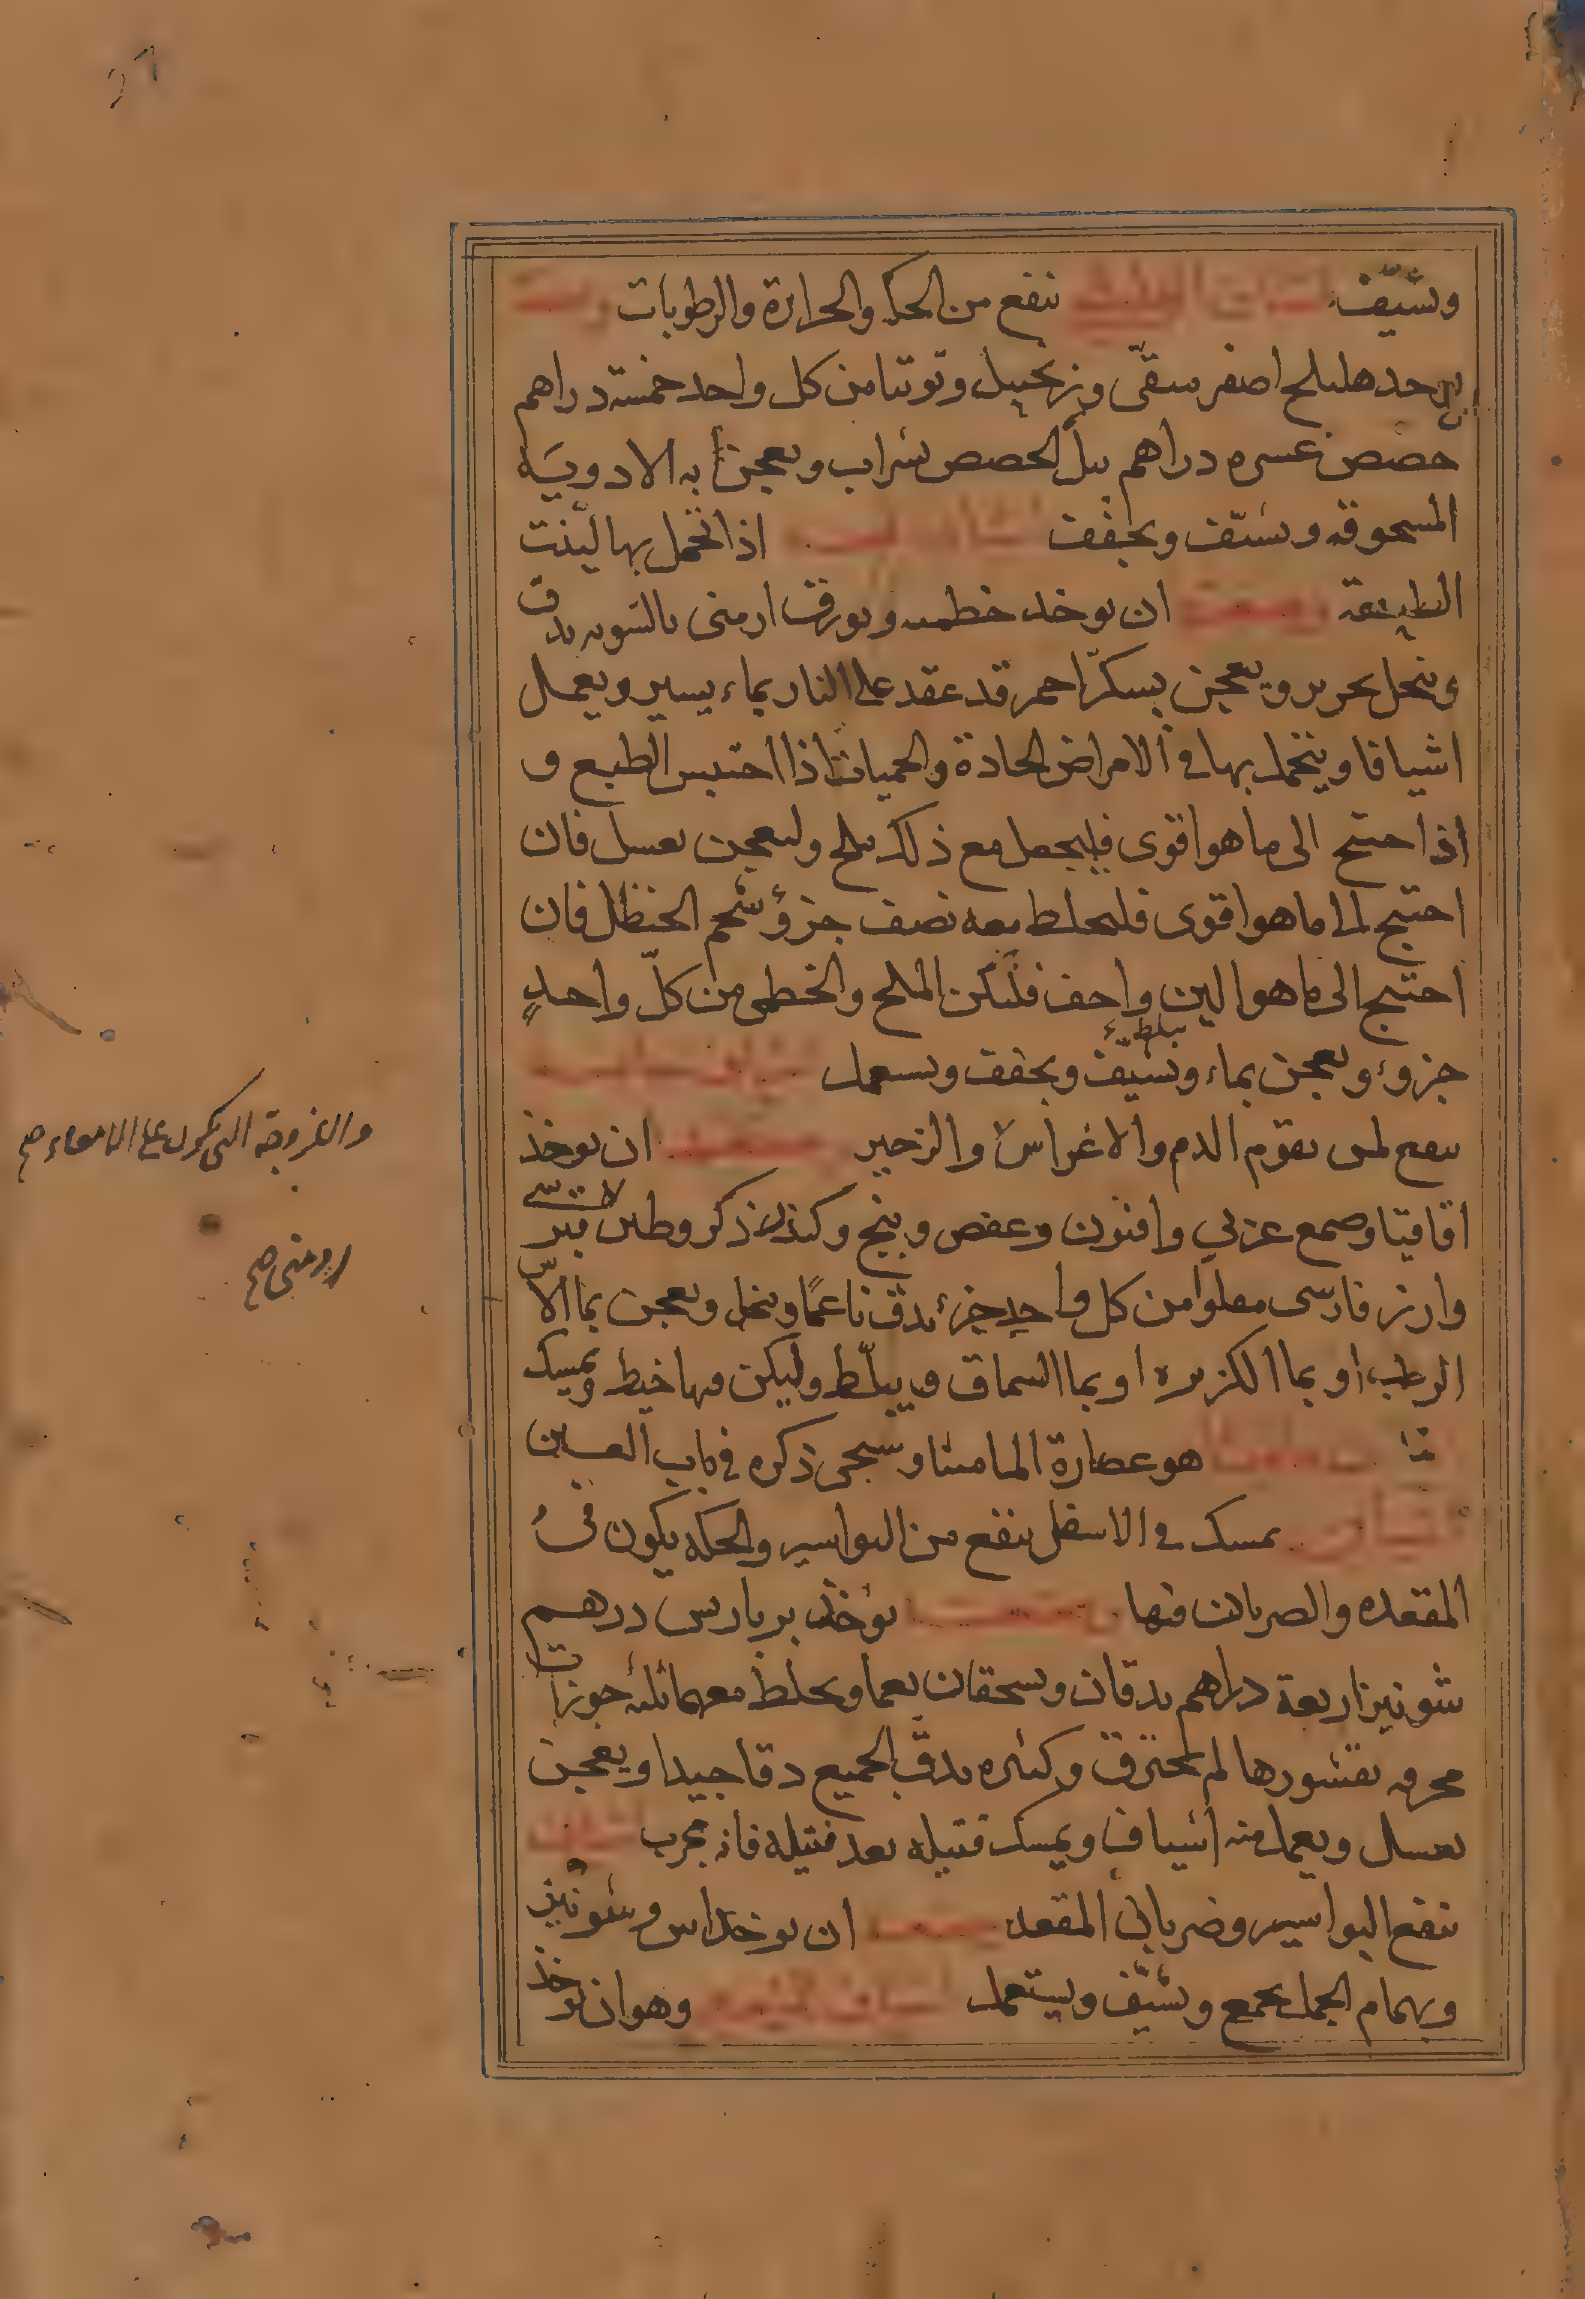 ويشيّف ينفع من الحكة والحرارة والرطوبات
يوخد هليلج اصفر منقّى وزنجبيل وتوتيا من كل واحد خمسة دراهم
حضض عسره دراهم يبلّ الحضض بشراب ويعجن به الادوية
المسحوقه ويشيّف ويجفّف اذا تحمل بها ليّنت
الطبيعة ان يوخد خطميه وبورق ارمنى بالسّويه يدق
وينخل بحرير ويعجن بسكّر احمر قد عقد على النار بماء يسير ويعمل
اشيافا ويتحمل بها في الامراض الحادة والحميات اذا احتبس الطبع و
اذا احتيج الى ما هو اقوى فليجعل مع ذلك ملح وليعجن بعسل فان
احتيج الى ما هو اقوى فليخلط معه نصف جزؤ شحم الحنظل فان
احتيج الى ما هو الين واخف فليكن الملح والخطمى من كلّ واحدٍ
جزوء ويعجن بماء ويشيّف ويجفف ويستعمل
يبلط
ينفع لمن يقوم الدم والاغراس والزحير ان يوخذ
والقروحه التى تكون على الامعاء صح
اقاقيا وصمغ عربي وافيون وعفص وبنج وكندر ذكر وطين
ارمنى صح
وارز فارسى مقلوا من كل واحد جزء يدق ناعمًا وينخل ويعجن بما الآس
الرطب او بما الكزبره او بما السماق ويبلّط وليكن فيها خيط ويمسك
هو عصارة الماميثا وسيجى ذكره في باب العين
يمسك في الاسفل ينفع من البواسير والحكه يكون في
المقعده والضربان فيها يؤخذ برباريس درهم
شونيز اربعة دراهم يدقان ويسحقان نعما ويخلط معهما ثلثه جوزات
محرقه بقشورها لم تحترق وكثيره يدقّ الجميع دقا جيدا ويعجن
بعسل ويعمل منه اشياف ويمسك فتيله بعد فتيله فانه مجرب
ينفع البواسير وضربان المقعد ان يوخد اس وشونيز
الجمل يجمع ويشيّف ويستعمل وهو ان يوخذ